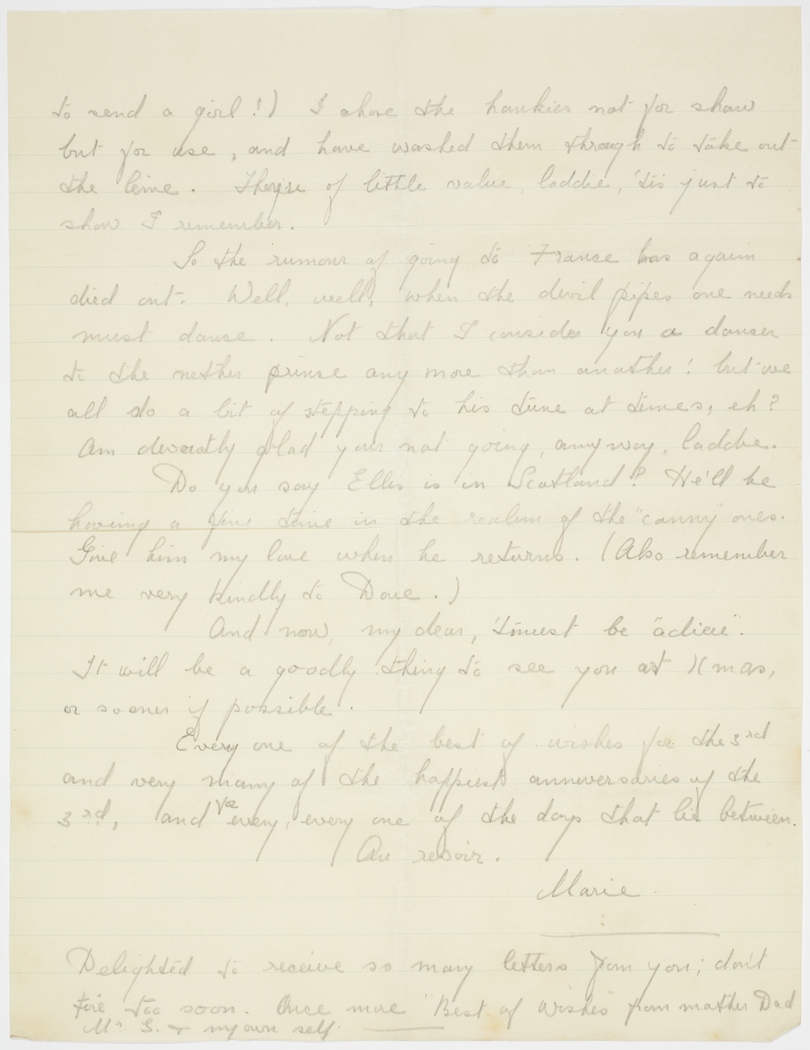 to send a girl!) I chose the hankies not for show
but for use, and have washed them through to take out
the lime. They're of little value, laddie, 'tis just to
show I remember.
So the rumour of going to France has again
died out. Well, well, when the devil pipes one needs
must dance. Not that I consider you a dancer
to the nether prince any more than another! but we
all do a bit of stepping to his tune at times, eh?
Am devoutly glad your not going, anyway, laddie.
Do you say Ellis is in Scotland? He'll be
having a fine time in the realm of the "canny" ones.
Give him my love when he returns. (Also remember
me very kindly to Dave.)
And now, my dear, 'tmust be "adieu".
It will be a goodly thing to see you at Xmas,
or sooner if possible.
Every one of the best of wishes for the 3rd
and very many of the happiest anniversaries of the
3rd, and for every, every one of the days that lie between.
Au revoir.
Marie.
Delighted to receive so many letters from you; don't
tire too soon. Once more Best of wishes from mother Dad
Mr S. & my own self.